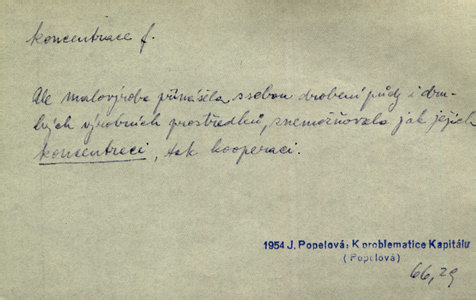 koncentrace f.
Ale malovýroba přinášela s sebou drobení půdy i dru-
hých výrobních prostředků, znemožňovala jak jejich
koncentraci, tak kooperaci.
1954 J. Popelová: K problematice Kapitálu
(Popelová)
66,29